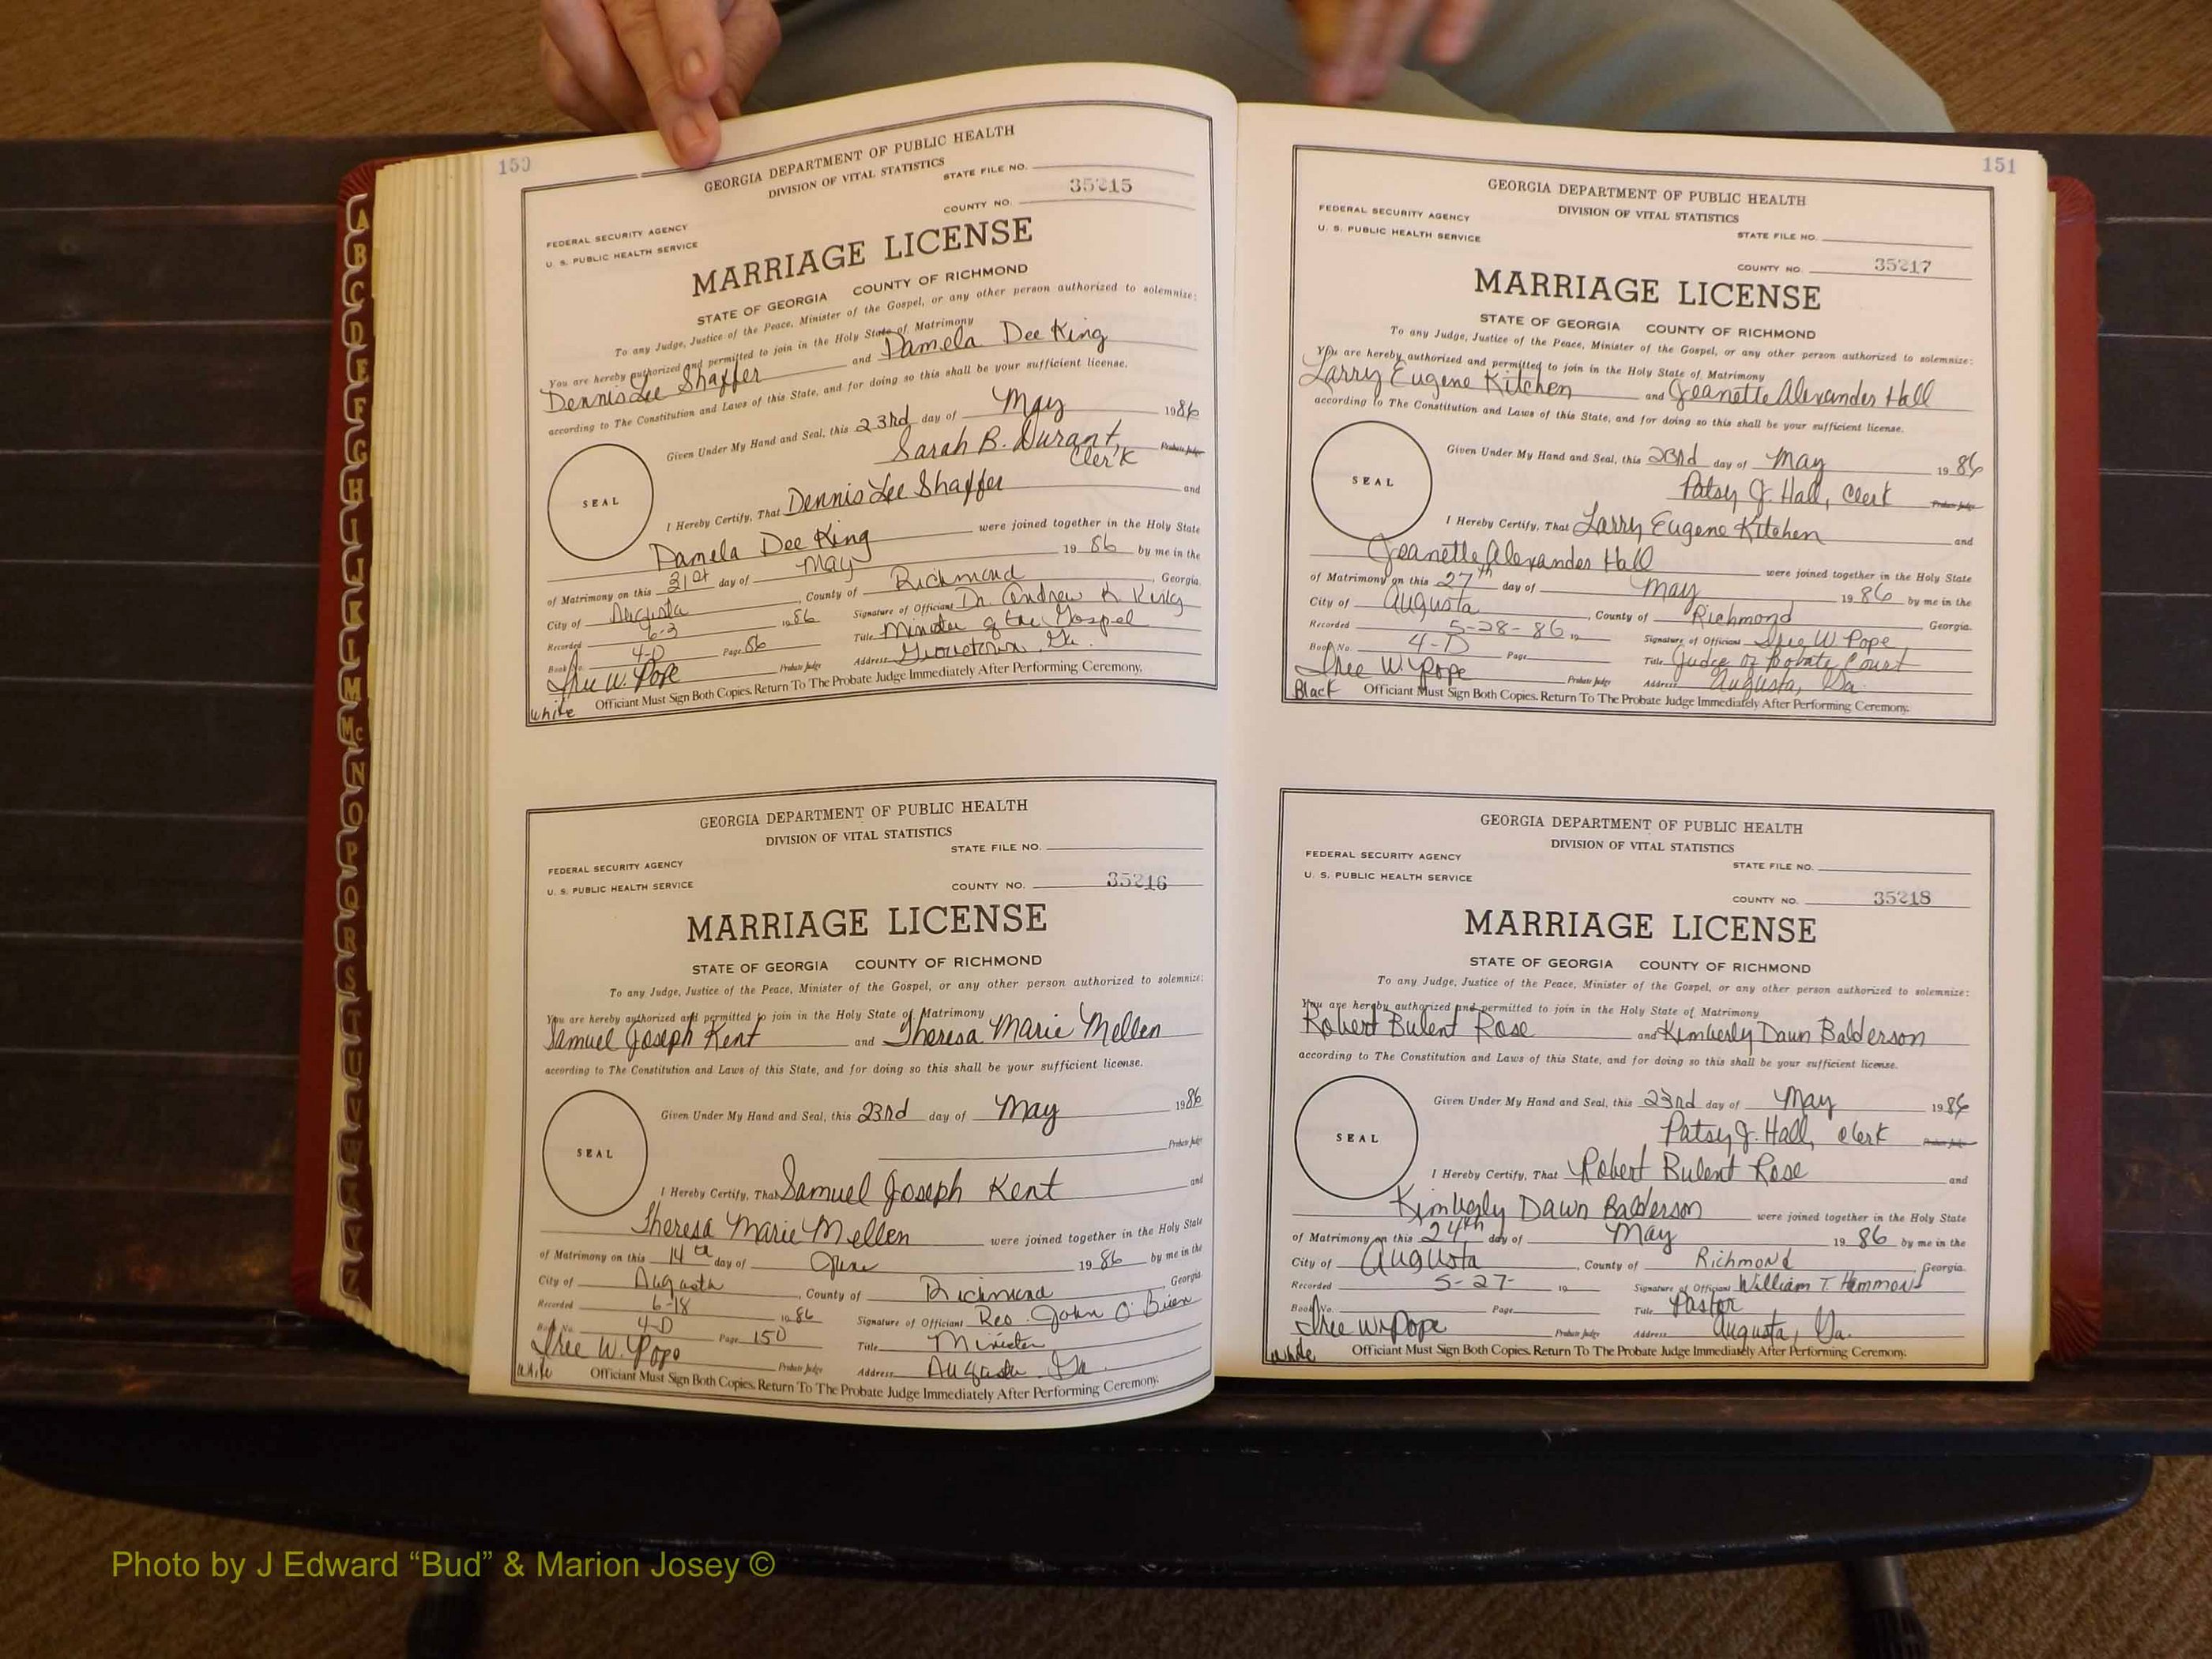 150
GEORGIA DEPARTMENT OF PUBLIC HEALTH
DIVISION OF VITAL STATISTICS
STATE FILE NO.
35215
COUNTY NO.
FEDERAL SECURITY AGENCY
U. S. PUBLIC HEALTH SERVICE
MARRIAGE LICENSE
STATE OF GEORGIA COUNTY OF RICHMOND
To any Judge, Justice of the Peace, Minister of the Gospel, or any other person authorized to solemnize:
You are hereby authorized and permitted to join in the Holy State of Matrimony
Dennis Lee Shaffer and Pamela Dee King
according to The Constitution and Laws of this State, and for doing so this shall be your sufficient license.
Given Under My Hand and Seal, this 23rd day of May 1986
Sarah B. Durant, Clerk Probate Judge
SEAL
I Hereby Certify, That Dennis Lee Shaffer and
Pamela Dee King were joined together in the Holy State
of Matrimony on this 31st day of May 19 86 by me in the
City of Augusta, County of Richmond, Georgia.
Recorded 6-3 1986 Signature of Officiant Dr. Andrew K. King
Book No. 4-D Page 86 Title Minister of the Gospel
W. Pope Probate Judge Address Grovetown, Ga.
White Officiant Must Sign Both Copies. Return To The Probate Judge Immediately After Performing Ceremony.
GEORGIA DEPARTMENT OF PUBLIC HEALTH
DIVISION OF VITAL STATISTICS
STATE FILE NO.
FEDERAL SECURITY AGENCY
U. S. PUBLIC HEALTH SERVICE
COUNTY NO. 35216
MARRIAGE LICENSE
STATE OF GEORGIA COUNTY OF RICHMOND
To any Judge, Justice of the Peace, Minister of the Gospel, or any other person authorized to solemnize:
You are hereby authorized and permitted to join in the Holy State of Matrimony
Samuel Joseph Kent and Theresa Marie Mellen
according to The Constitution and Laws of this State, and for doing so this shall be your sufficient license.
Given Under My Hand and Seal, this 23rd day of May 1986
Probate Judge
SEAL
I Hereby Certify, That Samuel Joseph Kent and
Theresa Marie Mellen were joined together in the Holy State
of Matrimony on this 14th day of June 19 86 by me in the
City of Augusta, County of Richmond, Georgia
Recorded 6-18 1986 Signature of Officiant Rev. John O'Brien
Book No. 4-D Page 150 Title Minister
W. Pope Probate Judge Address Augusta, Ga.
White Officiant Must Sign Both Copies. Return To The Probate Judge Immediately After Performing Ceremony.
151
GEORGIA DEPARTMENT OF PUBLIC HEALTH
DIVISION OF VITAL STATISTICS
FEDERAL SECURITY AGENCY
U. S. PUBLIC HEALTH SERVICE
STATE FILE NO.
COUNTY NO. 35217
MARRIAGE LICENSE
STATE OF GEORGIA COUNTY OF RICHMOND
To any Judge, Justice of the Peace, Minister of the Gospel, or any other person authorized to solemnize:
You are hereby authorized and permitted to join in the Holy State of Matrimony
Larry Eugene Kitchen and Jeanette Alexander Hall
according to The Constitution and Laws of this State, and for doing so this shall be your sufficient license.
Given Under My Hand and Seal, this 23rd day of May 19 86
Patsy J. Hall, Clerk Probate Judge
SEAL
I Hereby Certify, That Larry Eugene Kitchen and
Jeanette Alexander Hall were joined together in the Holy State
of Matrimony on this 27th day of May 19 86 by me in the
City of Augusta, County of Richmond Georgia.
Recorded 5-28-86 19 Signature of Officiant W. Pope
Book No. 4-D Page Title Judge of Probate Court
W. Pope Probate Judge Address Augusta, Ga.
Black Officiant Must Sign Both Copies. Return To The Probate Judge Immediately After Performing Ceremony.
GEORGIA DEPARTMENT OF PUBLIC HEALTH
DIVISION OF VITAL STATISTICS
FEDERAL SECURITY AGENCY
U. S. PUBLIC HEALTH SERVICE
STATE FILE NO.
COUNTY NO. 35218
MARRIAGE LICENSE
STATE OF GEORGIA COUNTY OF RICHMOND
To any Judge, Justice of the Peace, Minister of the Gospel, or any other person authorized to solemnize:
You are hereby authorized and permitted to join in the Holy State of Matrimony
Robert Bulent Rose and Kimberly Dawn Balderson
according to The Constitution and Laws of this State, and for doing so this shall be your sufficient license.
Given Under My Hand and Seal, this 23rd day of May 1986
Patsy J. Hall, Clerk Probate Judge
SEAL
I Hereby Certify, That Robert Bulent Rose and
Kimberly Dawn Balderson were joined together in the Holy State
of Matrimony on this 24th day of May 19 86 by me in the
City of Augusta, County of Richmond, Georgia.
Recorded 5-27- 19 Signature of Officiant William T. Hammons
Book No. Page Title Pastor
W. Pope Probate Judge Address Augusta, Ga.
White Officiant Must Sign Both Copies. Return To The Probate Judge Immediately After Performing Ceremony.
A
B
C
D
E
F
G
H
I
J
K
L
M
Mc
N
O
P
Q
R
S
T
U
V
W
X
Y
Z
Photo by J Edward “Bud” & Marion Josey ©